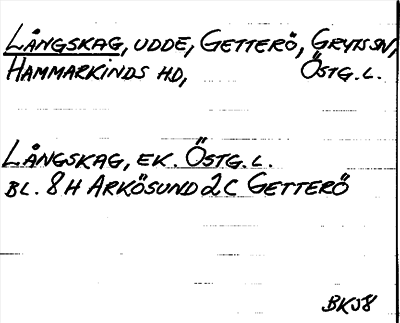 LÅNGSKAG, UDDE, GETTERÖ, GRYTS SN,
HAMMARKINDS HD, ÖSTG. L.
LÅNGSKAG, EK. ÖSTG. L.
BL. 8 H ARKÖSUND 2 C GETTERÖ
BKJ8